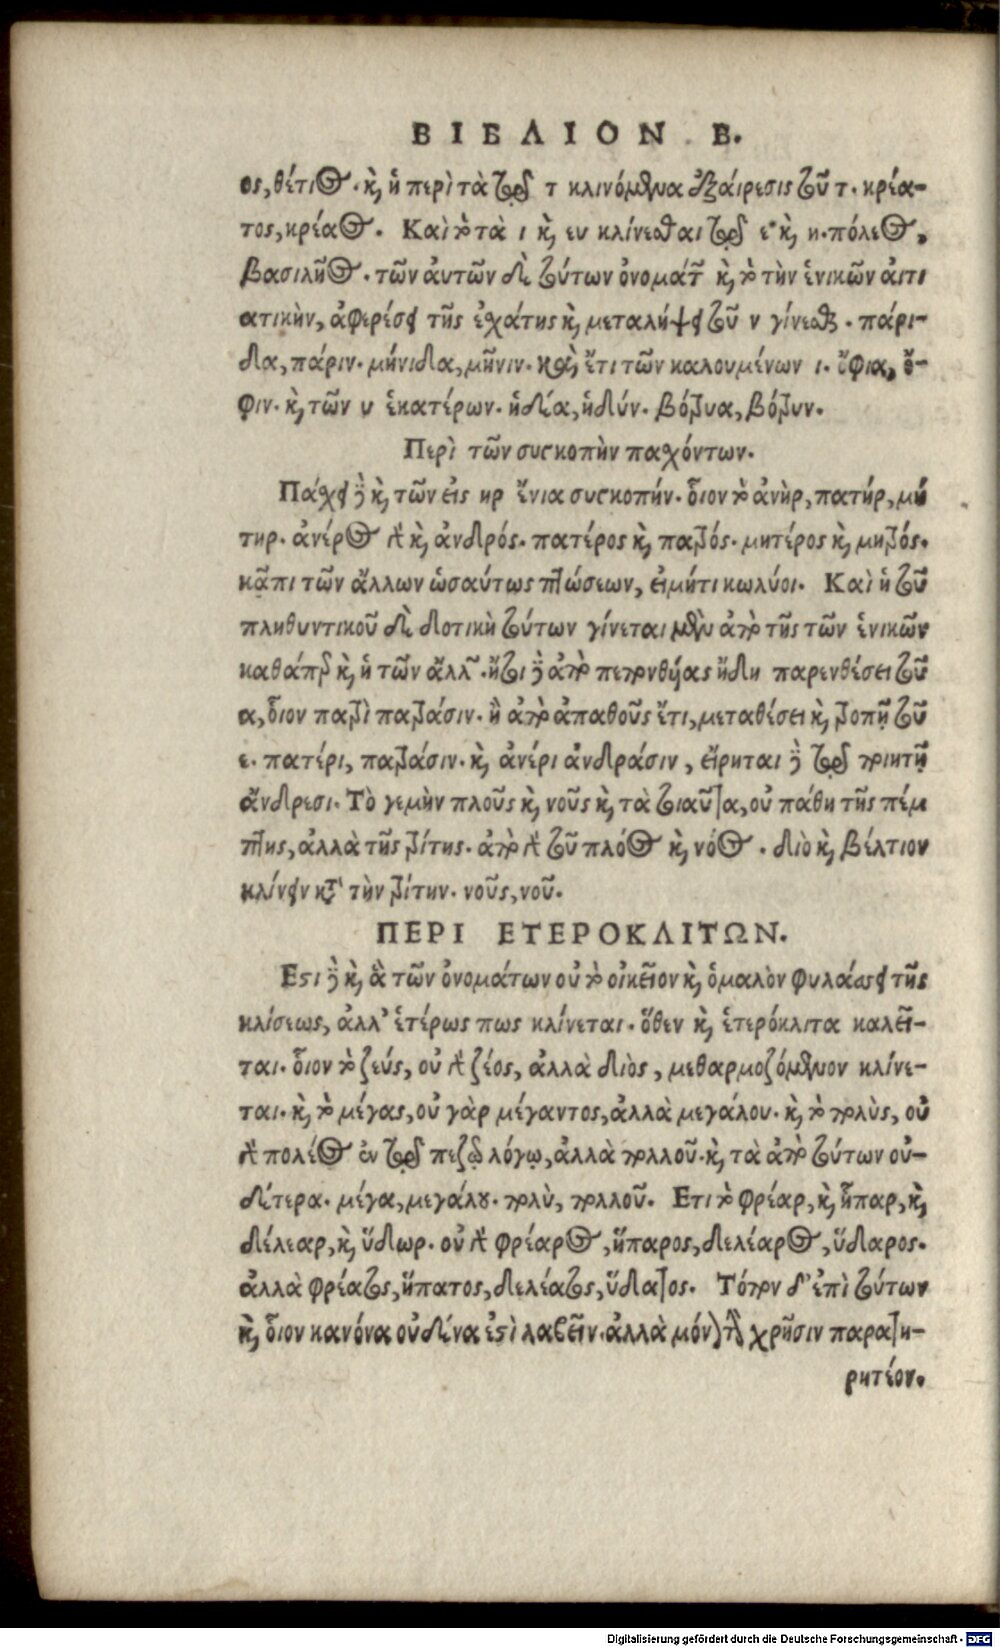 ΒΙΒΛΙΟΝ Β.
ος, θέτιος. καὶ ἡ περὶ τὰ τῷ τ κλινόμενα ἐξαίρεσις τοῦ τ. κρέα-
τος, κρέαος. Καὶ τὸ τὰ ι καὶ ευ κλίνεσθαι τῷ ε καὶ η. πόλεος,
βασιλῆος. τῶν αὐτῶν δὲ τούτων ὀνομάτων καὶ τὸ τὴν ἑνικῶν αἰτι
ατικὴν, ἀφερέσει τῆς ἐσχάτης καὶ μεταλήψει τοῦ ν γίνεσθαι. πάρι-
δα, πάριν. μήνιδα, μῆνιν. καὶ ἔτι τῶν καλουμένων ι. ὄφια, ὄ-
φιν. καὶ τῶν υ ἑκατέρων. ἡδέα, ἡδύν. βότρυα, βότρυν.
Περὶ τῶν συγκοπὴν πασχόντων.
Πάσχει δὲ καὶ τῶν εἰς ηρ ἔνια συγκοπήν. οἷον τὸ ἀνὴρ, πατήρ, μή
τηρ. ἀνέρος γὰρ καὶ ἀνδρός. πατέρος καὶ πατρός. μητέρος καὶ μητρός.
κᾀπι τῶν ἄλλων ὡσαύτως πτώσεων, εἰμήτι κωλύοι. Καὶ ἡ τοῦ
πληθυντικοῦ δὲ δοτικὴ τούτων γίνεται μὲν ἀπὸ τῆς τῶν ἑνικῶν
καθάπερ καὶ ἡ τῶν ἄλλων. ἤτοι δὲ ἀπὸ πεπονθυίας ἤδη παρενθέσει τοῦ
α, οἷον πατρὶ πατράσιν. ἢ ἀπὸ ἀπαθοῦς ἔτι, μεταθέσει καὶ τροπῇ τοῦ
ε. πατέρι, πατράσιν. καὶ ἀνέρι ἀνδράσιν, εἴρηται δὲ τῷ ποιητῇ
ἄνδρεσι. Τὸ γεμὴν πλοῦς καὶ νοῦς καὶ τὰ τοιαῦτα, οὐ πάθη τῆς πέμ
πτης, ἀλλὰ τῆς τρίτης. ἀπὸ γὰρ τοῦ πλόος καὶ νόος. διὸ καὶ βέλτιον
κλίνειν κατὰ τὴν τρίτην. νοῦς, νοῦ.
ΠΕΡΙ ΕΤΕΡΟΚΛΙΤΩΝ.
Εστι δὲ καὶ ἃ τῶν ὀνομάτων οὐ τὸ οἰκεῖον καὶ ὁμαλὸν φυλάσσει τῆς
κλίσεως, ἀλλ’ ἑτέρως πως κλίνεται. ὅθεν καὶ ἑτερόκλιτα καλεῖ-
ται. οἷον τὸ ζεύς, οὐ γὰρ ζέος, ἀλλὰ διὸς, μεθαρμοζόμενον κλίνε-
ται. καὶ τὸ μέγας, οὐ γὰρ μέγαντος, ἀλλὰ μεγάλου. καὶ τὸ πολὺς, οὐ
γὰρ πολέος ἐν τῷ πεζῷ λόγῳ, ἀλλὰ πολλοῦ. καὶ τὰ ἀπὸ τούτων οὐ-
δέτερα. μέγα, μεγάλου. πολὺ, πολλοῦ. Ετι τὸ φρέαρ, καὶ ἧπαρ, καὶ
δέλεαρ, καὶ ὕδωρ. οὐ γὰρ φρέαρος, ἥπαρος, δελέαρος, ὕδαρος.
ἀλλὰ φρέατος, ἥπατος, δελέατος, ὕδατος. Τόπον δ’ ἐπὶ τούτων
καὶ οἷον κανόνα οὐδένα ἐστὶ λαβεῖν. ἀλλὰ μόνον τὴν χρῆσιν παρατη-
ρητέον.
Digitalisierung gefördert durch die Deutsche Forschungsgemeinschaft - DFG